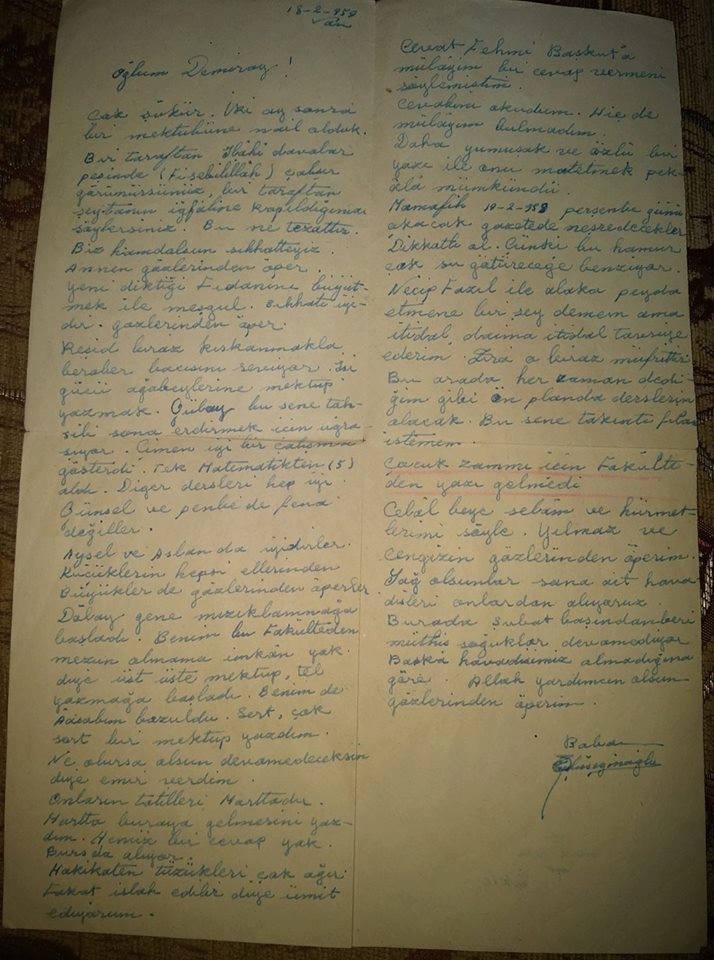 18-2-959
Van
Oğlum Demiray!
Çok şükür. İki ay sonra
bir mektubuna nail olduk.
Bir taraftan İlahi davalar
peşinde (Fisebilillâh) çabur
görünürsünüz, bir taraftan
şeytanın iğfaline kapıldığınızı
söylersiniz. Bu ne tezattır.
Biz hamdolsun sıhhatteyiz.
Annen gözlerinden öper.
Yeni diktiği fidanını büyüt-
mek ile meşgul. Sıhhati iyi-
dir. gözlerinden öper.
Reşid biraz kıskanmakla
beraber bacısını seviyor. İşi
gücü ağabeylerine mektup
yazmak. Gülay bu sene tah-
sili sona erdirmek için uğra
şıyor. Çimen iyi bir çalışma
gösterdi. Tek Matematikten (5)
aldı. Diğer dersleri hep iyi.
Günsel ve penbe de fena
değiller.
Aysel ve Aslan da iyidirler.
Küçüklerin hepsi ellerinden
Büyükler de gözlerinden öperler
Dölay gene mızıklanmağa
başladı. Benim bu Fakülteden
mezun olmama imkân yok
diye üst üste mektup, tel
yazmağa başladı. Benim de
Âsabım bozuldu. Sert, çok
sert bir mektup yazdım.
Ne olursa olsun devamedeceksin
diye emir verdim.
Onların tatilleri Marttadır.
Martta buraya gelmesini yaz-
dım. Henüz bir cevap yok.
Bursda alıyor.
Hakikaten tüzükleri çok ağır
Fakat ıslah edilir diye ümit
ediyorum.
Cevat Fehmi Başkut'a
mülâyim bir cevap vermeni
söylemiştim.
Cevabını okudum. Hiç de
mülâyim bulmadım.
Daha yumuşak ve özlü bir
yazı ile onu matetmek pek-
âlâ mümkündü.
Mamafih 19-2-959 perşenbe günü
çıkacak gazetede neşredecekler
Dikkatli ol. Çünki bu hamur
çok su götüreceğe benziyor.
Necip Fazıl ile alaka peyda
etmene bir şey demem ama
itidal, daima itidal tavsiye
ederim. Zira o biraz müfrittir.
Bu arada, her zaman dedi-
ğim gibi ön planda derslerin
olacak. Bu sene takıntı filan
istemem.
Çocuk zammı için Fakülte-
den yazı gelmedi
Celâl beye selâm ve hürmet-
lerimi söyle. Yılmaz ve
Cengizin gözlerinden öperim.
Sağ olsunlar sana ait hava
disleri onlardan alıyoruz.
Burada şubat başındanberi
müthiş soğuklar devamediyor.
Başka havadisimiz olmadığına
göre. Allah yardımcın olsun
gözlerinden öperim.
Baban